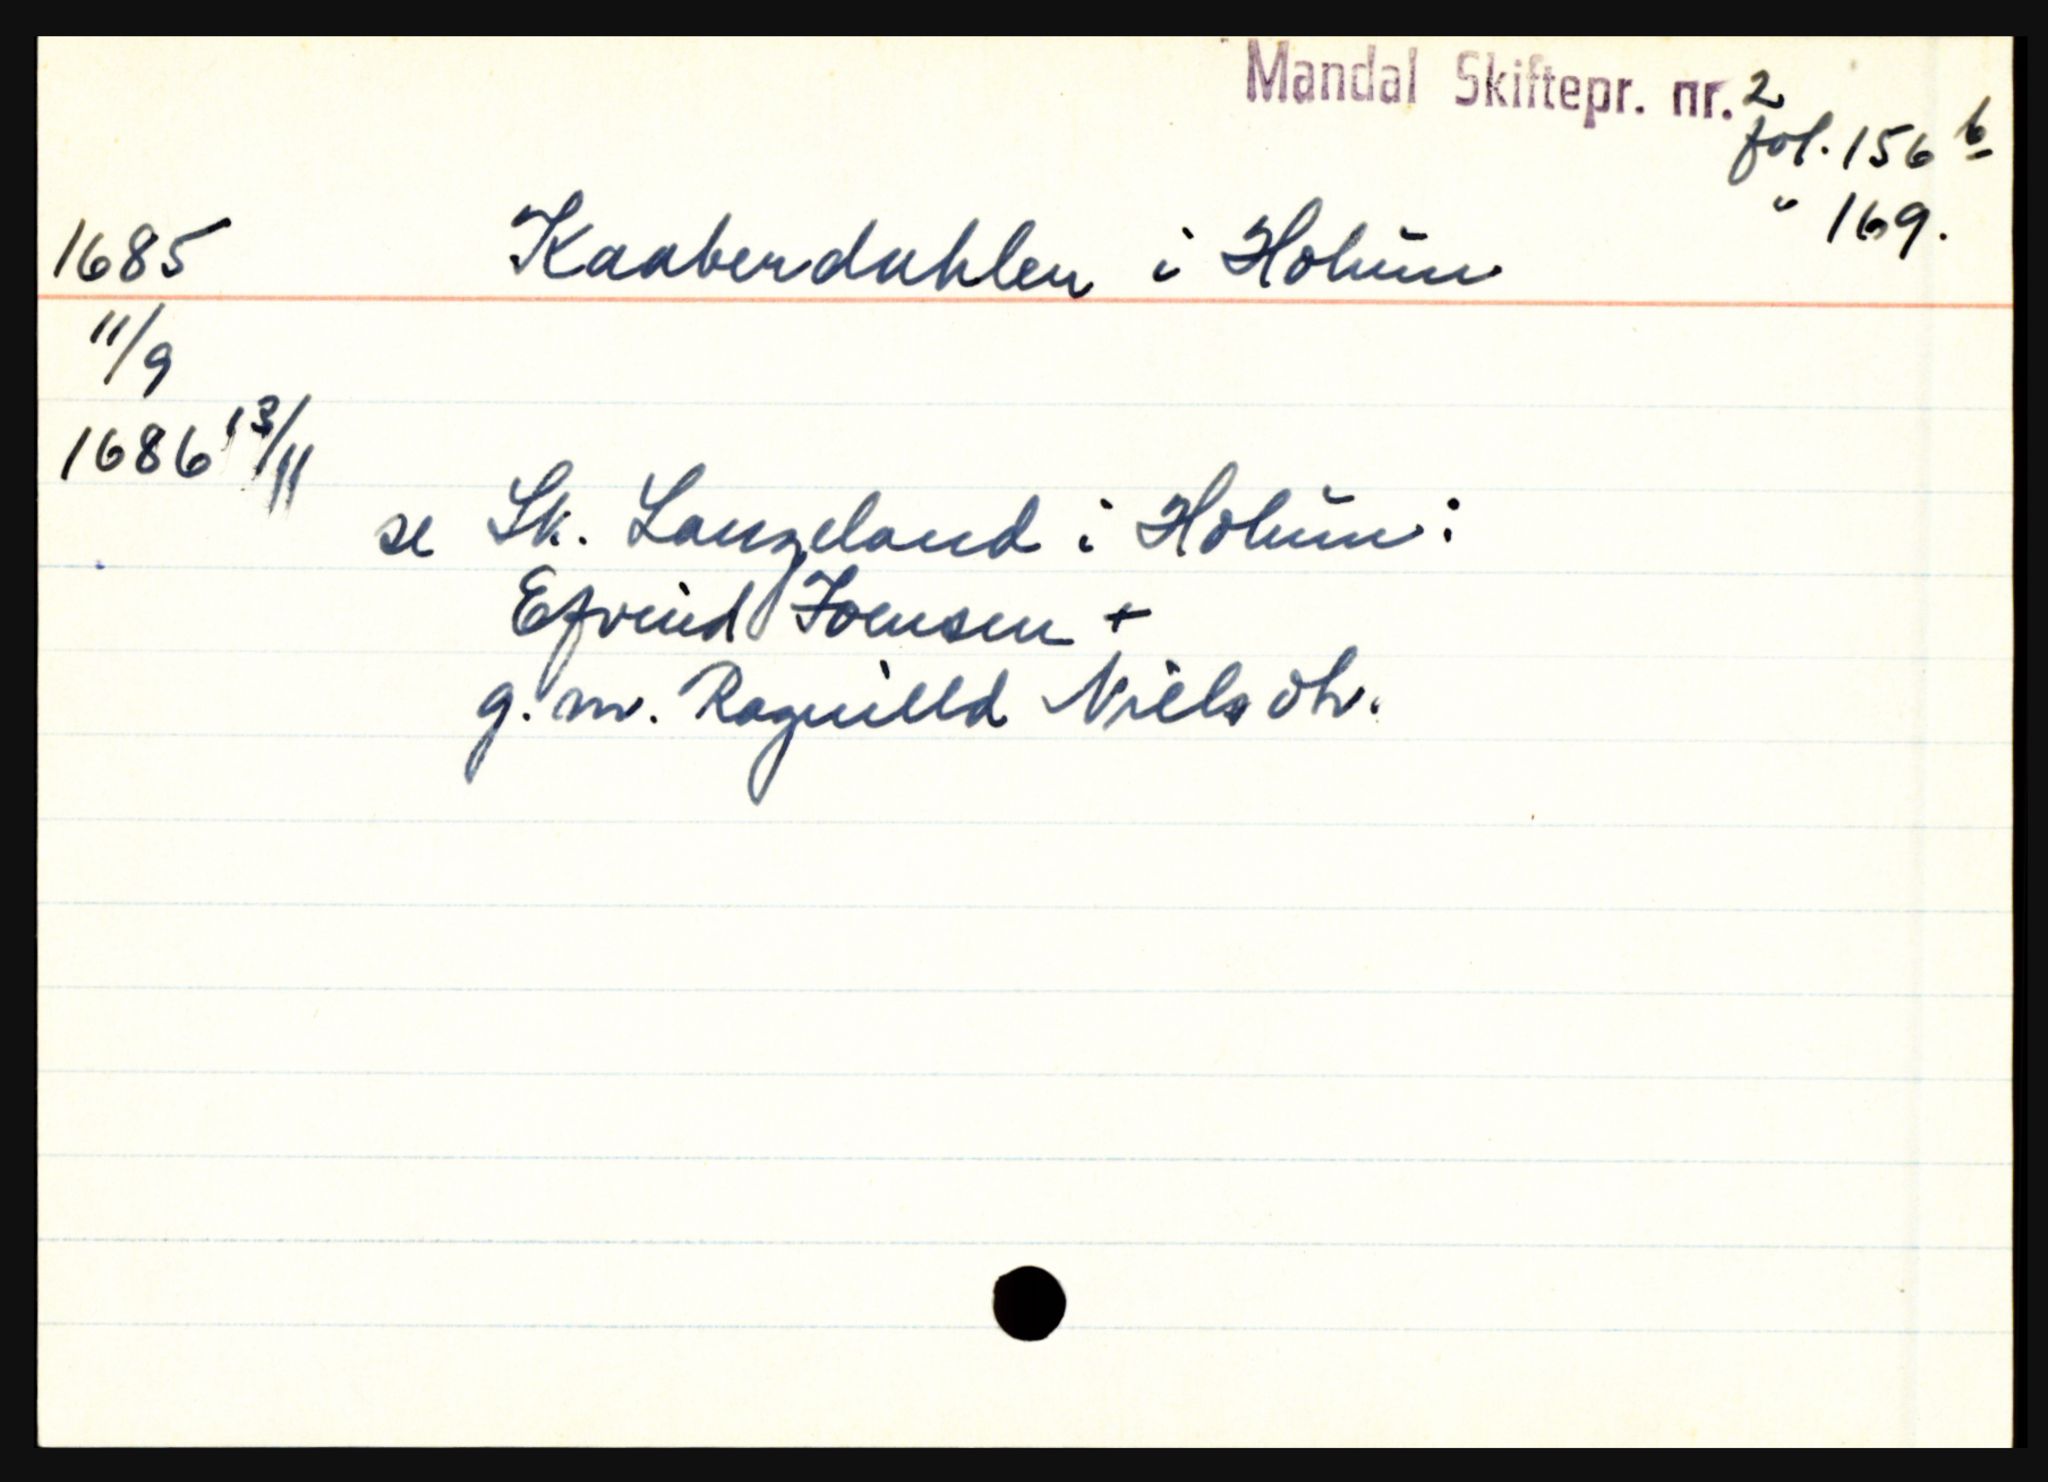 Mandal Skiftepr. nr. 2
fol. 156 b
" 169.
1685 Kaaberdahlen i Holum
11/9
1686 13/11
se Sk. Langeland i Holum:
Efvind Joensen +
g. m. Ragnilld Niels dtr.